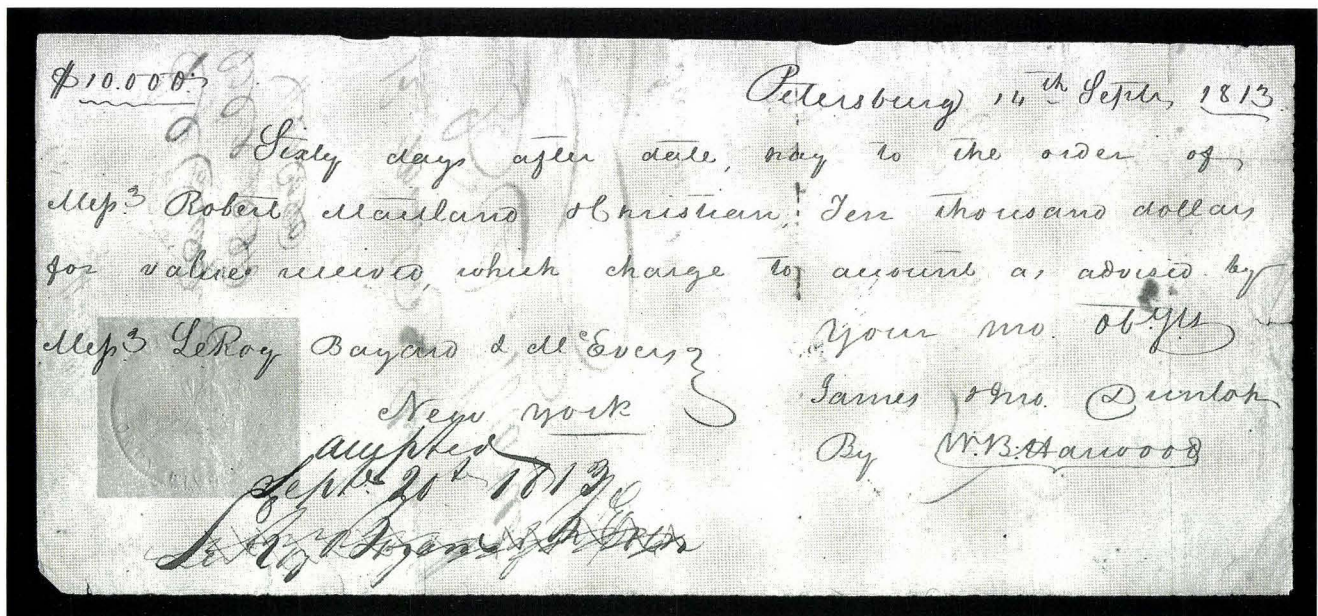 $10.000.
Petersburg 14th Septr, 1813
Sixty days after date, pay to the order of
Messs Robert Maitland & Christian, Ten thousand dollars
for value received, which charge to account as advised by
Messs LeRoy Bayard & McEvers
New York
Your mo. ob. Sts
James & Jno. Dunlop
By W.B. Harwood
accepted
Sept. 20th 1813
Le Roy Bayard & McEvers